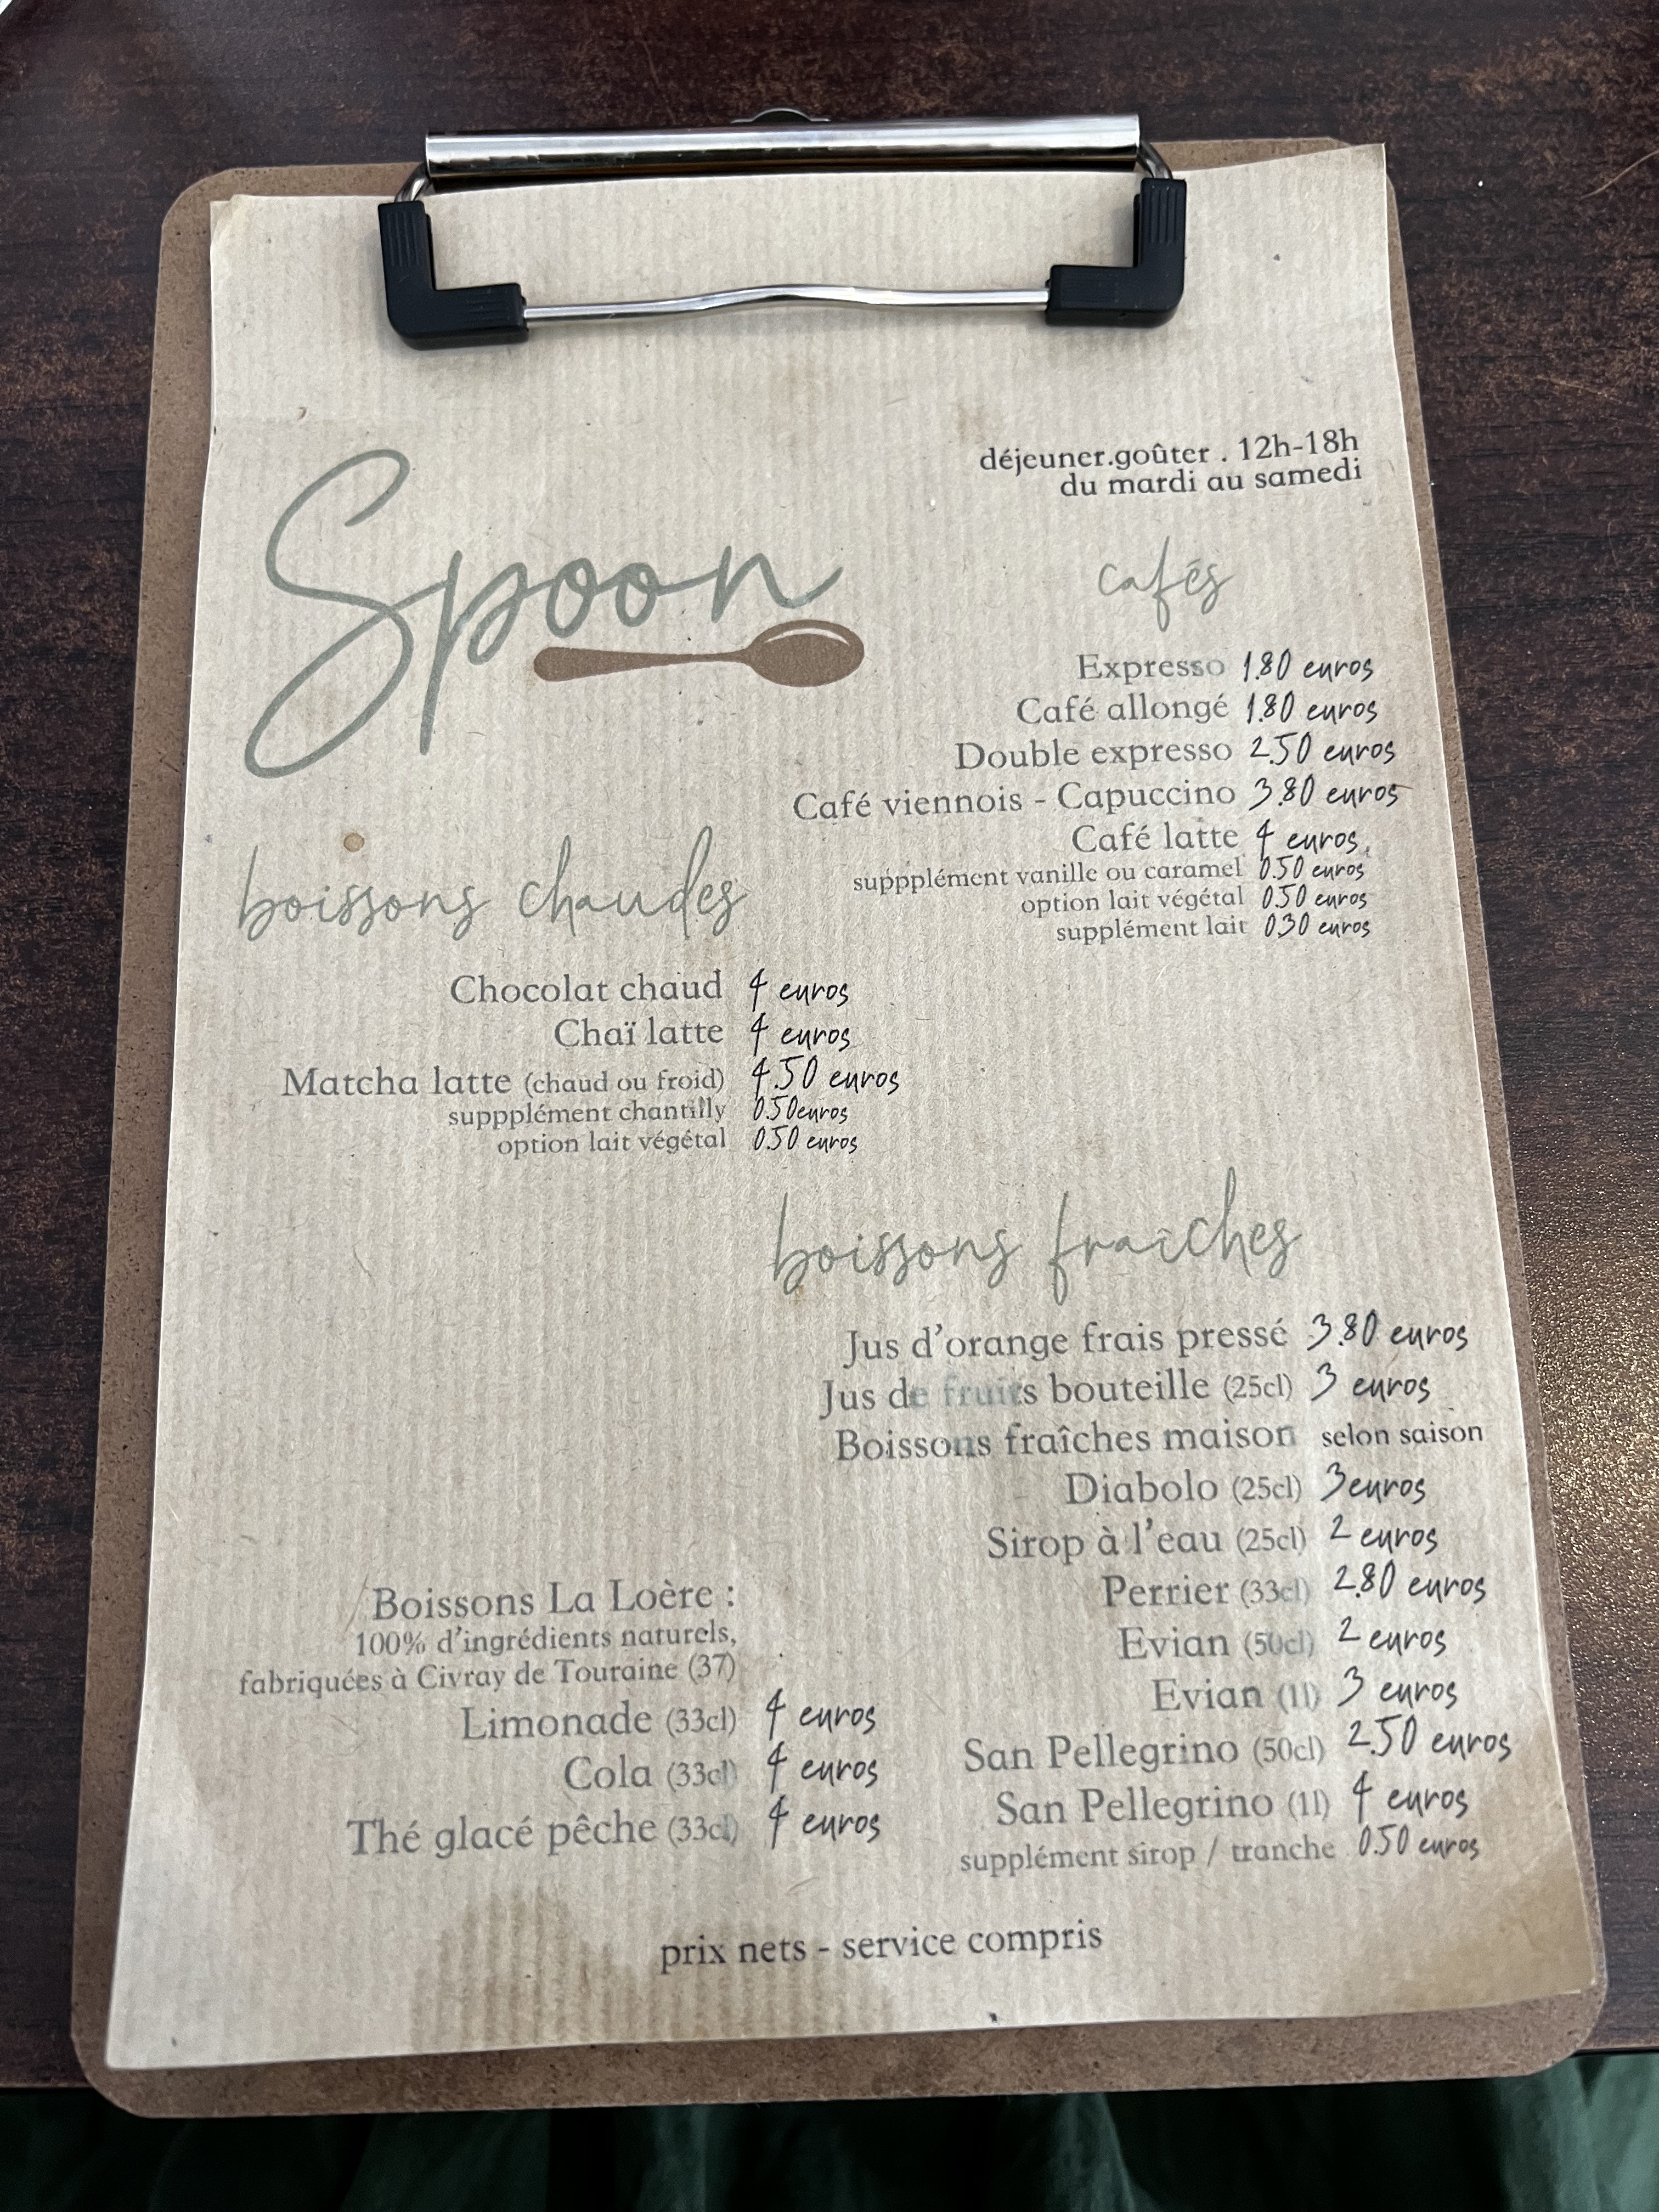 Spoon
déjeuner.goûter . 12h-18h
du mardi au samedi
cafés
Expresso 1.80 euros
Café allongé 1.80 euros
Double expresso 2.50 euros
Café viennois - Capuccino 3.80 euros
Café latte 4 euros
suppplément vanille ou caramel 0.50 euros
option lait végétal 0.50 euros
supplément lait 0.30 euros
boissons chaudes
Chocolat chaud 4 euros
Chaï latte 4 euros
Matcha latte (chaud ou froid) 4.50 euros
suppplément chantilly 0.50euros
option lait végétal 0.50 euros
boissons fraîches
Jus d'orange frais pressé 3.80 euros
Jus de fruits bouteille (25cl) 3 euros
Boissons fraîches maison selon saison
Diabolo (25cl) 3euros
Sirop à l'eau (25cl) 2 euros
Perrier (33cl) 2.80 euros
Evian (50cl) 2 euros
Evian (1l) 3 euros
San Pellegrino (50cl) 2.50 euros
San Pellegrino (1l) 4 euros
supplément sirop / tranche 0.50 euros
Boissons La Loère :
100% d'ingrédients naturels,
fabriquées à Civray de Touraine (37)
Limonade (33cl) 4 euros
Cola (33cl) 4 euros
Thé glacé pêche (33cl) 4 euros
prix nets - service compris